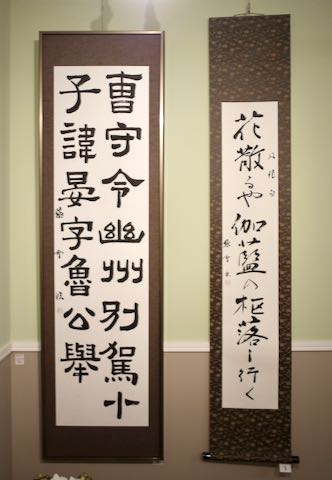 花散るや伽藍の枢落し行く
凡兆句
曹守令幽州別駕小
子諱晏字魯公舉